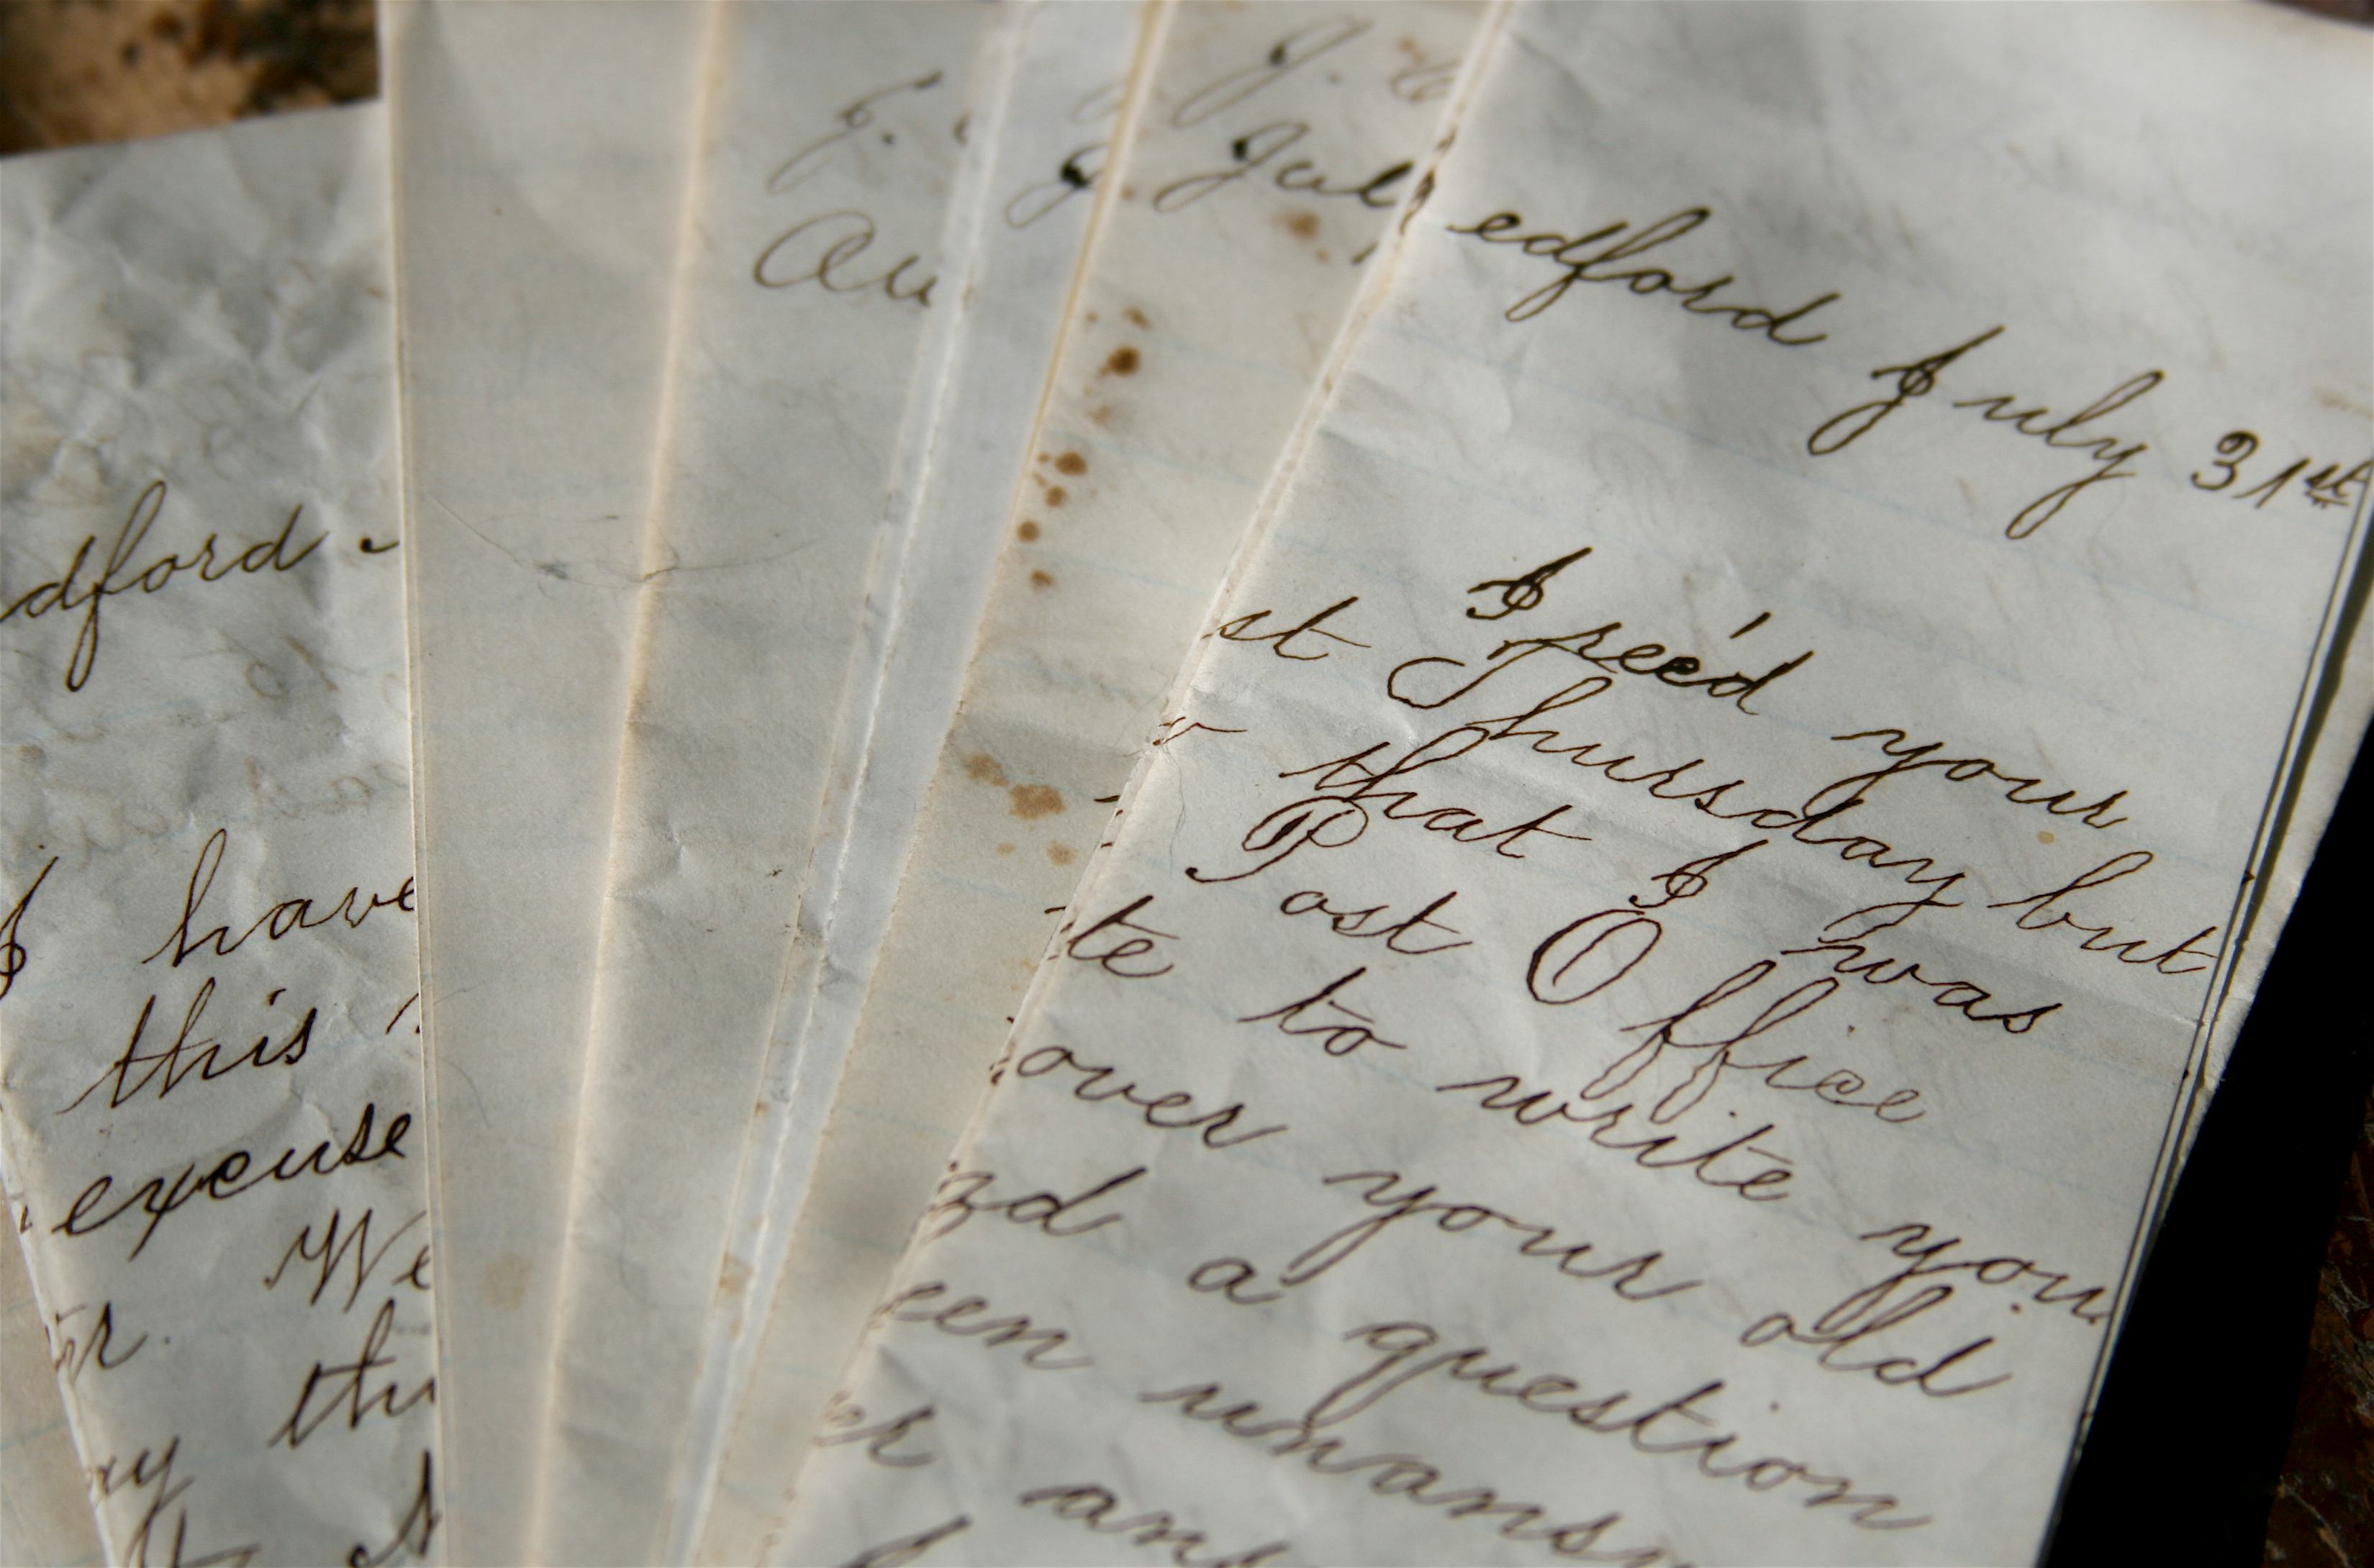 dford -
I have
this
excuse
We
thi
ay
Au
Jul
edford July 31st
I rec'd your
st Thursday but
that I was
Post Office
te to write you
over your old
a question
een unans
er ans